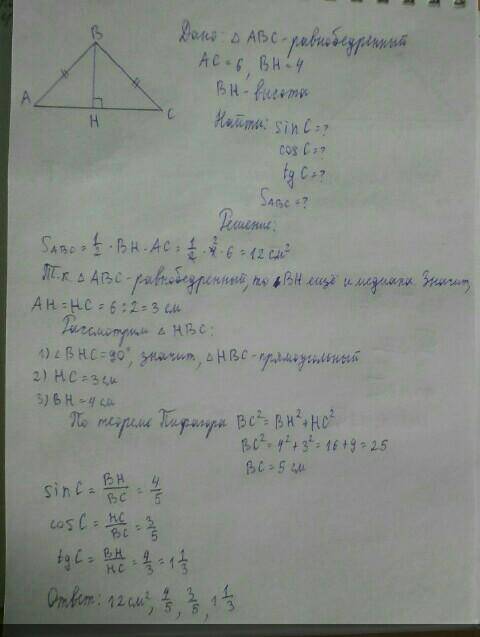 B
A
H
C
Дано: △ABC-равнобедренный
AC=6, BH=4
BH-высота
Найти: sinC=?
cosC=?
tgC=?
S_ABC=?
Решение:
S_ABC = 1/2 · BH · AC = 1/2 · 4 · 6 = 12 см²
Т.к. △ABC-равнобедренный, то BH ещё и медиана. Значит,
AH=HC=6:2=3 см
Рассмотрим △HBC:
1) ∠BHC=90°, значит, △HBC-прямоугольный
2) HC=3см
3) BH=4см
По теореме Пифагора BC²=BH²+HC²
BC²=4²+3²=16+9=25
BC=5 см
sinC = BH/BC = 4/5
cosC = HC/BC = 3/5
tgC = BH/HC = 4/3 = 1 1/3
Ответ: 12см², 4/5, 3/5, 1 1/3